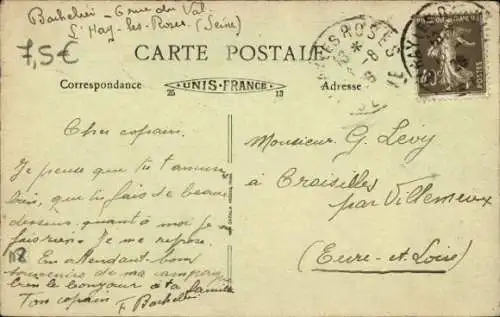 Bachelier - 6 rue du Val.
L'Hay-les-Roses (Seine)
7,5€
CARTE POSTALE
Correspondance
UNIS-FRANCE
25
13
Adresse
Cher copain.
Je pense que tu t'amuses
bien, que tu fais de beaux
dessins, quant à moi je ne
fais rien. Je me repose.
En attendant bons
souvenirs de ma campagne
bien le bonjour à ta famille
Ton copain F. Bachelier
Monsieur G. Levy
à Croisilles
par Villemeux
(Eure-et-Loire)